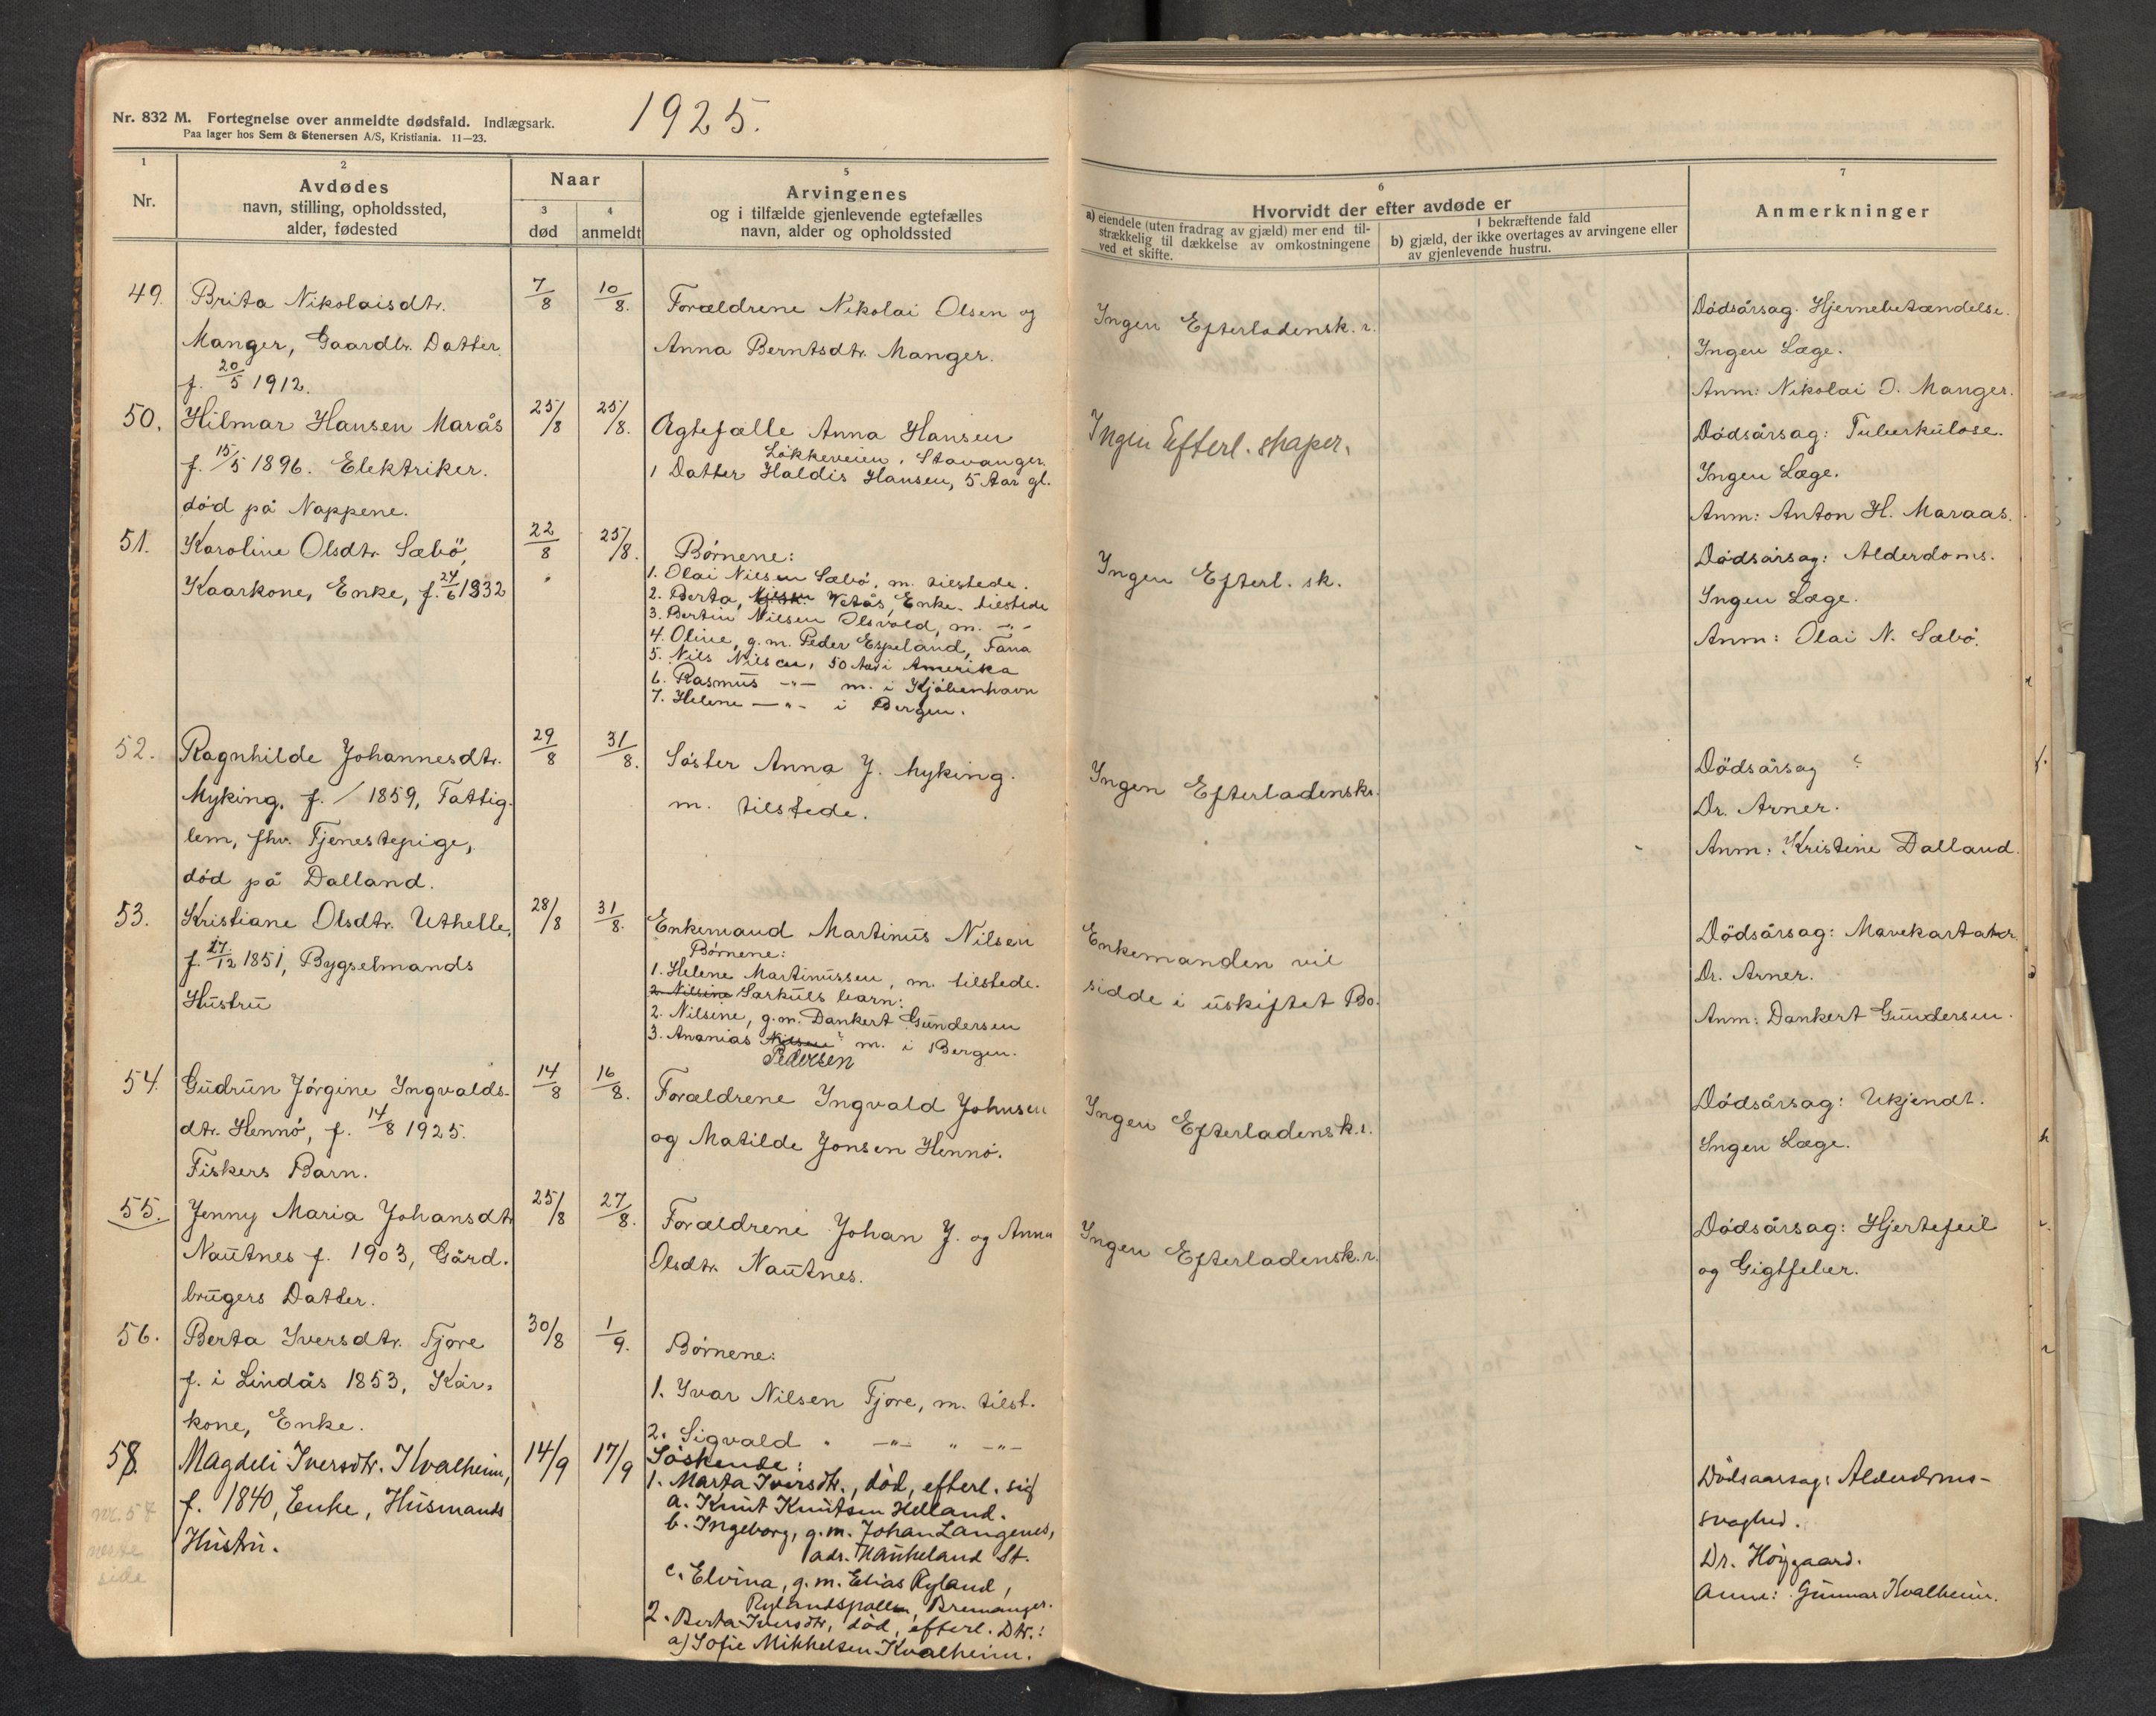 Nr. 832 M. Fortegnelse over anmeldte dødsfald. Indlægsark.
Paa lager hos Sem & Stenersen A/S, Kristiania. 11—23.
1925.
1
Nr.
2
Avdødes
navn, stilling, opholdssted,
alder, fødested
Naar
3
død
4
anmeldt
5
Arvingenes
og i tilfælde gjenlevende egtefælles
navn, alder og opholdssted
6
Hvorvidt der efter avdøde er
a) eiendele (uten fradrag av gjæld) mer end til-
strækkelig til dækkelse av omkostningene
ved et skifte.
I bekræftende fald
b) gjæld, der ikke overtages av arvingene eller
av gjenlevende hustru.
7
Anmerkninger
49.
Brita Nikolaisdtr.
Manger, Gaardbr. Datter
f. 20/5 1912.
7/8
10/8.
Forældrene Nikolai Olsen og
Anna Berntsdtr. Manger.
Ingen Efterladensk.r.
Dødsårsag. Hjernebetændelse.
Ingen Læge.
Anm: Nikolai O. Manger.
50.
Hilmar Hansen Marås
f. 15/5 1896. Elektriker.
død på Nappene.
25/8
25/8.
Ægtefælle Anna Hansen
Løkkeveien, Stavanger.
1 Datter Haldis Hansen, 5 Aar gl.
Ingen Efterl. skaper.
Dødsårsag: Tuberkulose.
Ingen Læge.
Anm: Anton H. Maraas.
51.
Karoline Olsdtr. Sæbø,
Kaarkone, Enke, f. 24/6 1832
22/8
25/8.
Børnene:
1. Olai Nilsen Sæbø, m. tilstede.
2. Berta, Vetås, Enke. tilstede
3. Bertin Nilsen Olsvold, m. -"-
4. Oline, g.m. Peder Espeland, Fana
5. Nils Nilsen, 50 Aar i Amerika
6. Rasmus -"- m. i Kjøbenhavn
7. Helene -"- i Bergen.
Ingen Efterl. sk.
Dødsårsag: Alderdoms.
Ingen Læge.
Anm: Olai N. Sæbø.
52.
Ragnhilde Johannesdtr.
Myking, f. / 1859, Fattig-
lem, fhv. Tjenestepige,
død på Dalland.
29/8
31/8.
Søster Anna J. Myking.
m. tilstede.
Ingen Efterladenskr.
Dødsårsag ?
Dr. Arner.
Anm: Kristine Dalland.
53.
Kristiane Olsdtr. Uthelle,
f. 17/12 1851, Bygselmands
Hustru
28/8
31/8.
Enkemand Martinus Nilsen
Børnene:
1. Helene Martinussen, m. tilstede.
2. Nilsine Særkuls barn:
2. Nilsine, g.m. Dankert Gundersen
3. Ananias Nilsen? m. i Bergen.
Pedersen
Enkemanden vil
sidde i uskiftet Bo.
Dødsårsag: Mavekartahr.
Dr. Arner.
Anm: Dankert Gundersen.
54.
Gudrun Jørgine Ingvalds-
dtr. Hennø, f. 14/8 1925.
Fiskers Barn.
14/8
16/8.
Forældrene Ingvald Johnsen
og Matilde Jonsen Hennø.
Ingen Efterladensk.r.
Dødsårsag: Ukjendt.
Ingen Læge.
55.
Jenny Maria Johansdtr
Nautnes f. 1903, Gård-
brugers Datter.
25/8
27/8.
Forældrene Johan J. og Anna
Olsdtr. Nautnes.
Ingen Efterladensk.r.
Dødsårsag: Hjertefeil
og Gigtfeber.
56.
Berta Iversdtr. Fjore
f. i Lindås 1853, Kår-
kone, Enke.
30/8
1/9.
Børnene:
1. Ivar Nilsen Fjore, m. tilst.
2. Sigvald " -"- " -"-
58.
nr. 57
neste
side
Magdeli Iversdtr. Kvalheim,
f. 1840, Enke, Husmands
Hustru.
14/9
17/9
Søskende:
1. Marta Iversdtr., død, efterl. sig
a. Knut Knutsen Helland.
b. Ingeborg, g.m. Johan Langenes,
adr. Haukeland St.
c. Elvina, g.m. Elias Ryland,
Rylandspollen, Bremanger.
2. Berta Iversdtr, død, efterl. Dtr.:
a) Sofie Mikkelsen Kvalheim.
Dødsaarsag: Alderdoms-
svaghed.
Dr. Høygaard.
Anm: Gunnar Kvalheim.